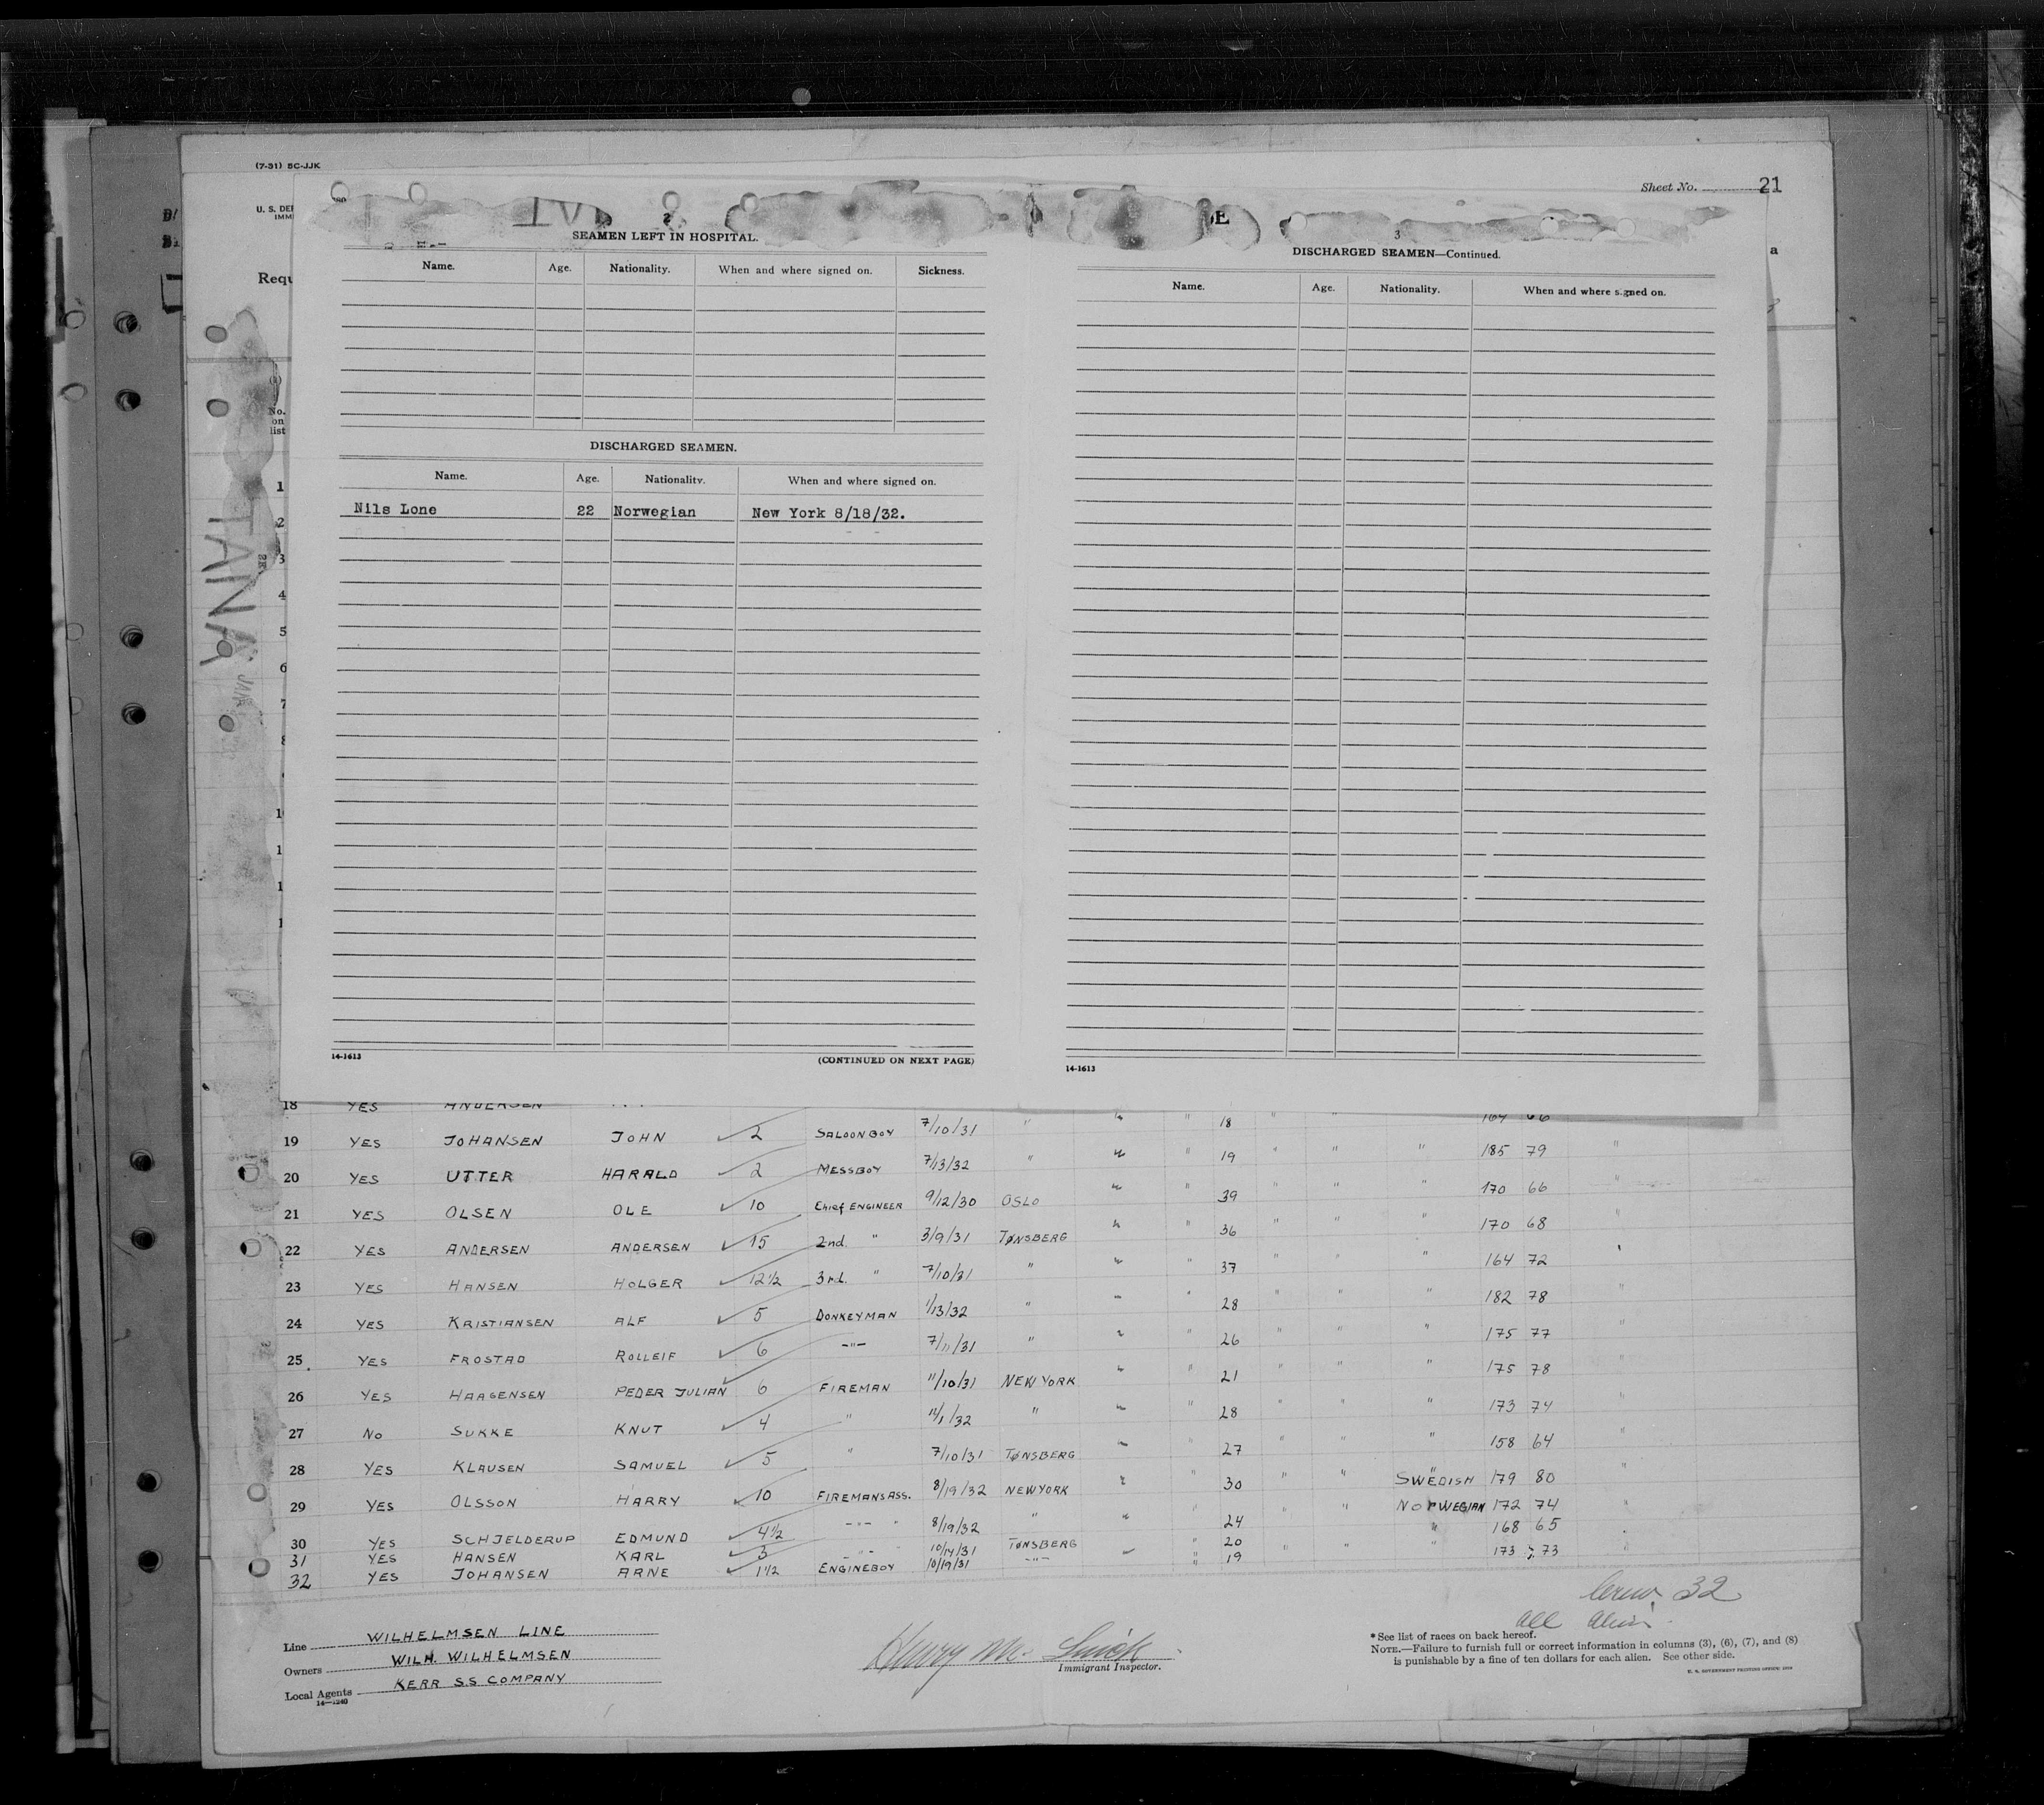 (7-31) BC-JJK
Sheet No. 21
U. S. DEP
IMM
Requ
2
SEAMEN LEFT IN HOSPITAL.
Name. Age. Nationality. When and where signed on. Sickness.
DISCHARGED SEAMEN.
Name. Age. Nationality. When and where signed on.
Nils Lone 22 Norwegian New York 8/18/32.
14-1613 (CONTINUED ON NEXT PAGE)
3
DISCHARGED SEAMEN—Continued.
Name. Age. Nationality. When and where signed on.
14-1613
(1)
No.
on
list
1
2
3
4
5
6
7
TANA
18 YES ANDERSEN 164 66
19 YES JOHANSEN JOHN 2 SALOONBOY 7/10/31 " " " 18
20 YES UTTER HARALD 2 MESSBOY 7/13/32 " " " 19 " " " 185 79 "
21 YES OLSEN OLE 10 Chief ENGINEER 9/12/30 OSLO " " 39 " " " 170 66 "
22 YES ANDERSEN ANDERSEN 15 2nd. " 3/9/31 TØNSBERG " " 36 " " " 170 68 "
23 YES HANSEN HOLGER 12½ 3rd. " 7/10/31 " " " 37 " " " 164 72
24 YES KRISTIANSEN ALF 5 DONKEYMAN 1/13/32 " " " 28 " " " 182 78 "
25 YES FROSTAD ROLLEIF 6 -"- 7/11/31 " " " 26 " " " 175 77 "
26 YES HAAGENSEN PEDER JULIAN 6 FIREMAN 11/10/31 NEW YORK " " 21 " " " 175 78 "
27 NO SUKKE KNUT 4 " " " " 28 " " " 173 74 "
28 YES KLAUSEN SAMUEL 5 " 7/10/31 TØNSBERG " " 27 " " " 158 64 "
29 YES OLSSON HARRY 10 FIREMANSASS. 8/19/32 NEWYORK " " 30 " " SWEDISH 179 80
30 YES SCHJELDERUP EDMUND 4½ -"- " 8/19/32 " " " 24 " " NORWEGIAN 172 74 "
31 YES HANSEN KARL 3 -"- 10/14/31 TØNSBERG " 20 " 168 65
32 YES JOHANSEN ARNE 1½ ENGINEBOY 10/19/31 -"- " " 19 " " " 173 73 "
Crew 32
all
Line WILHELMSEN LINE
Owners WILH. WILHELMSEN
Local Agents KERR S.S COMPANY
14—1240
Henry
Immigrant Inspector.
* See list of races on back hereof.
NOTE.—Failure to furnish full or correct information in columns (3), (6), (7), and (8)
is punishable by a fine of ten dollars for each alien. See other side.